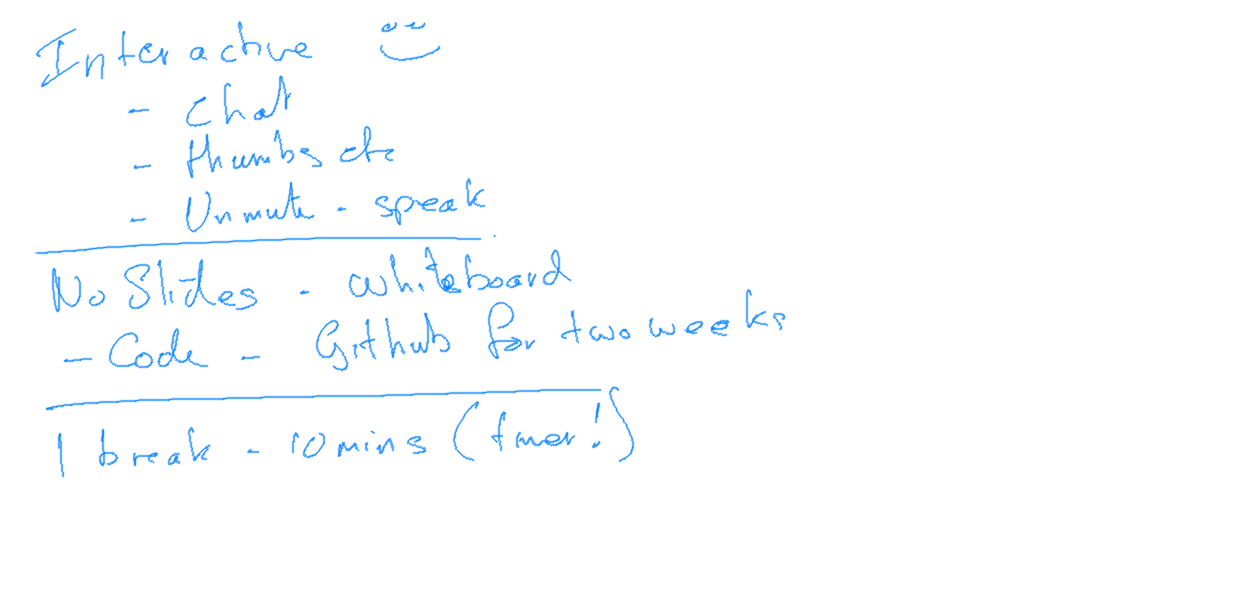 Interactive
- Chat
- thumbs etc
- Unmute - speak
No Slides - Whiteboard
- Code - Github for two weeks
1 break - 10 mins (timer!)